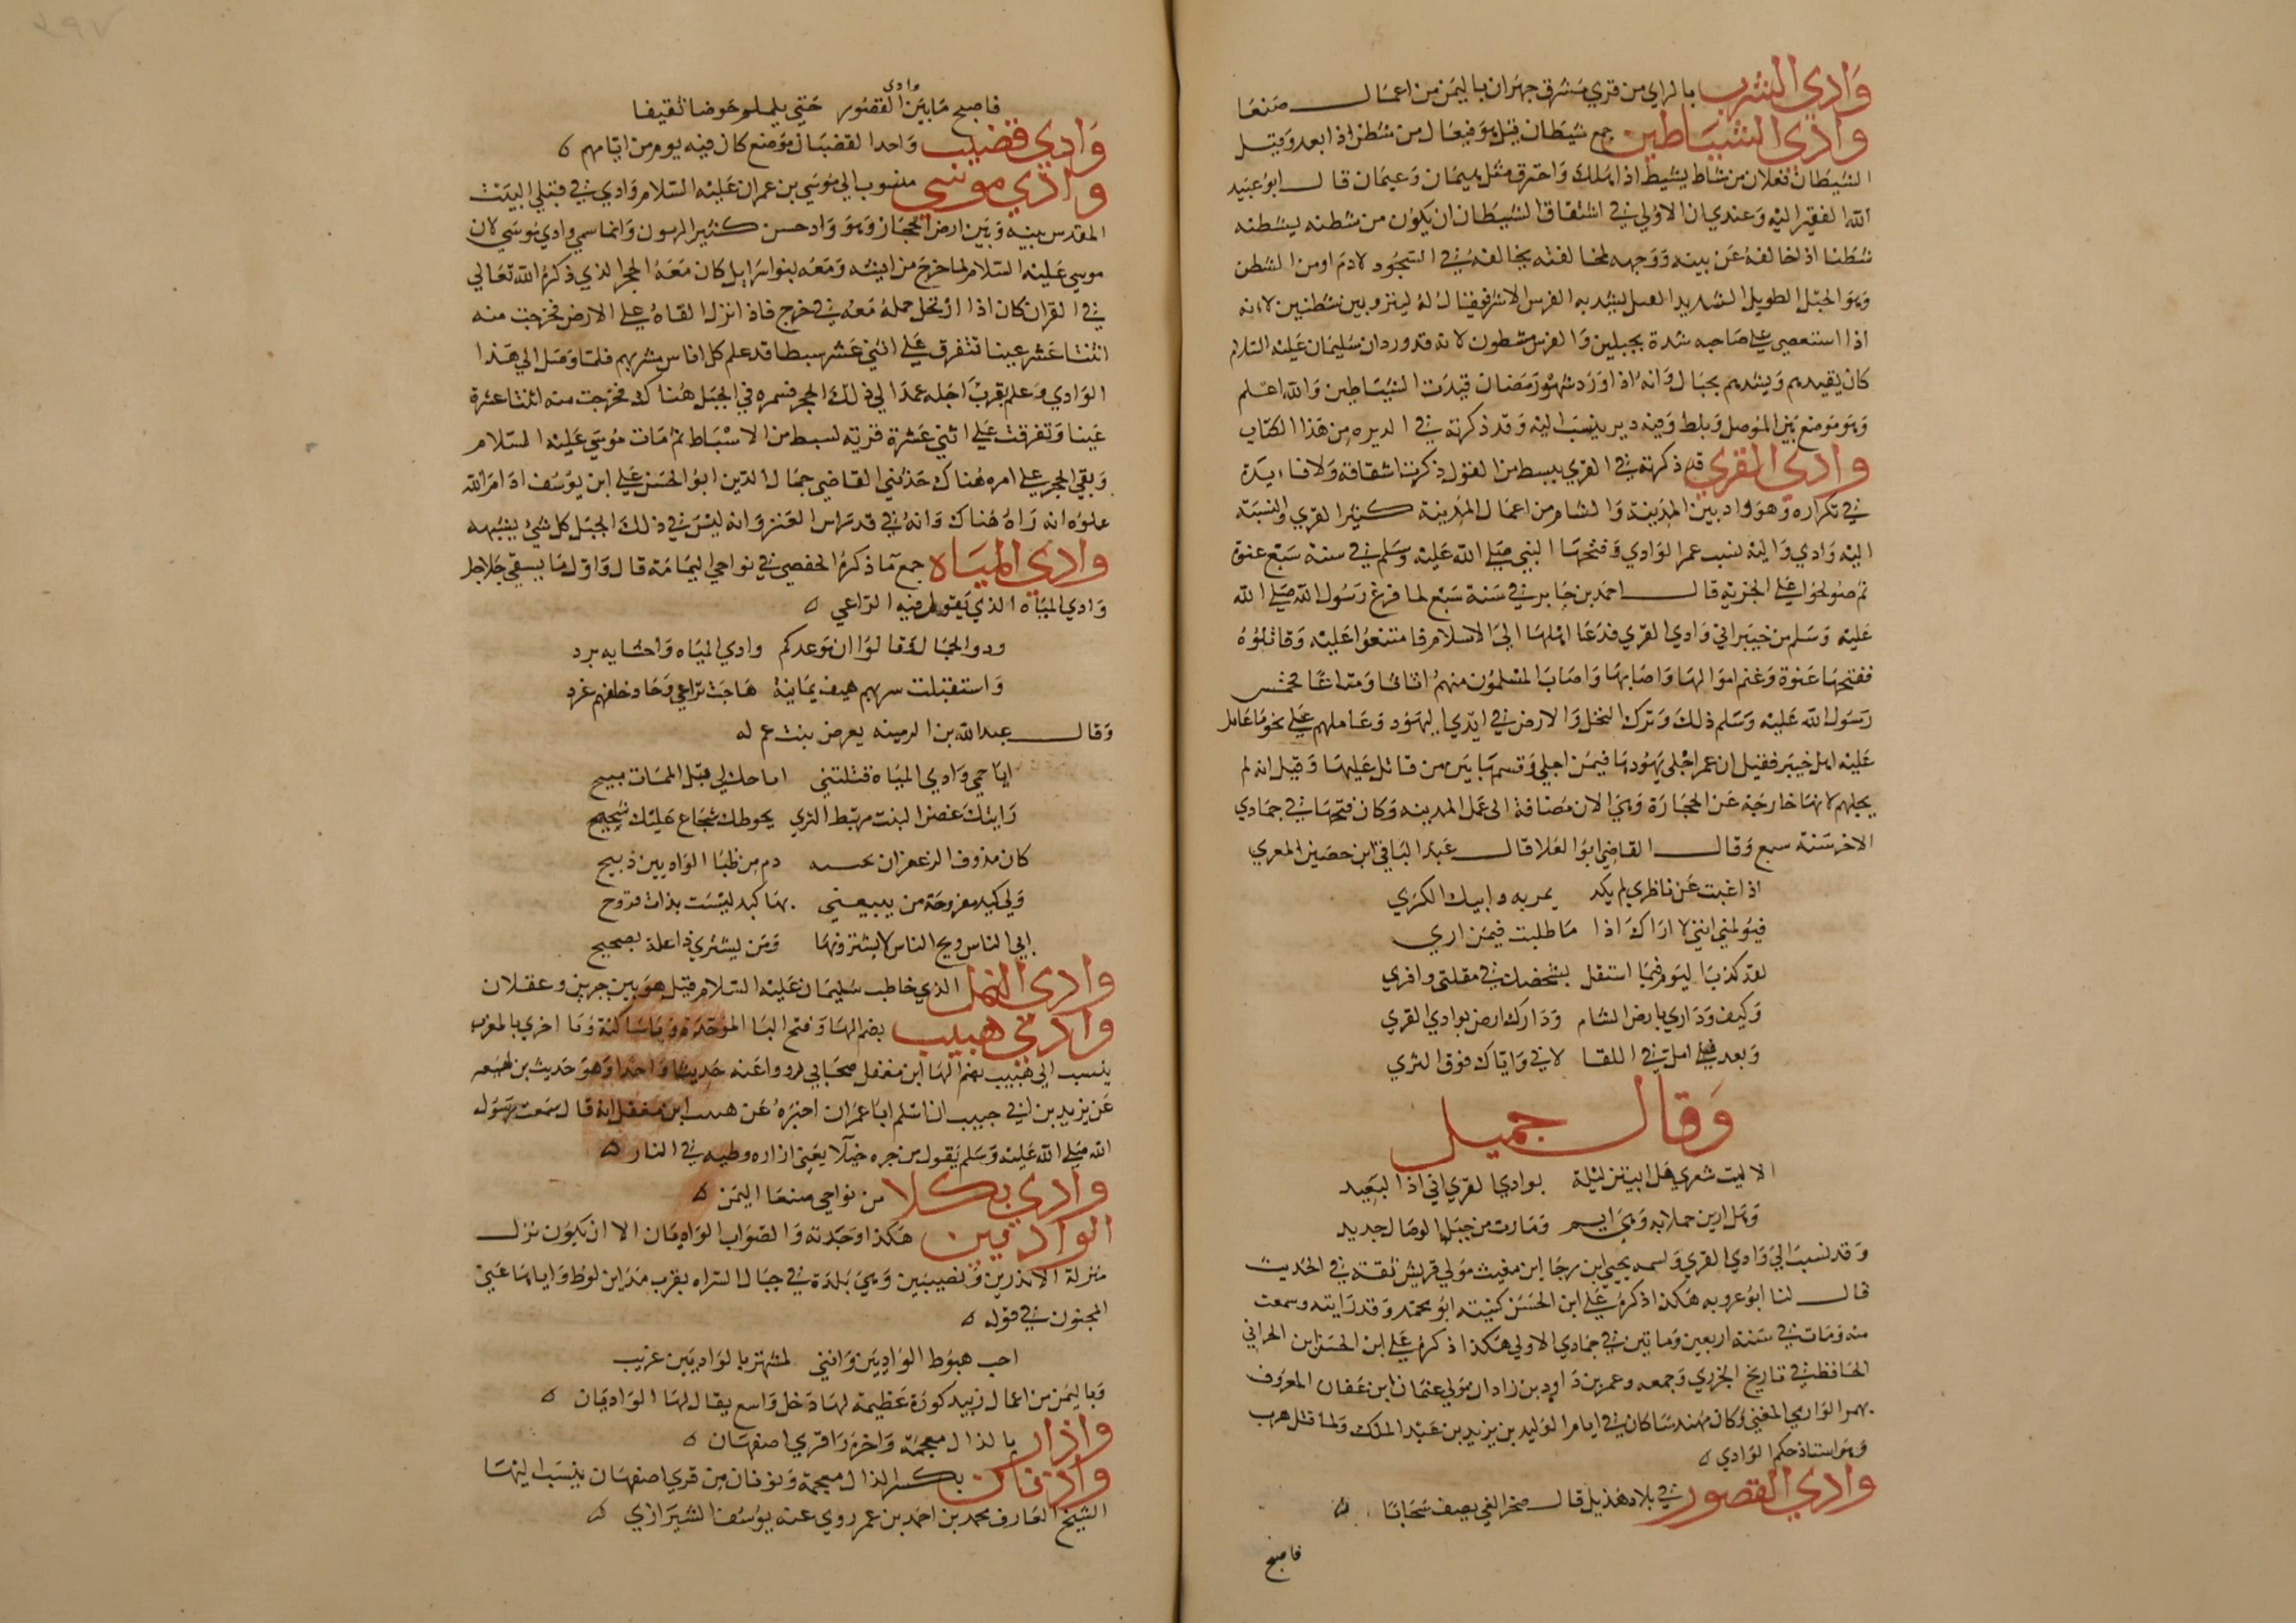 وادي الشرب بالراي من قري مشرق جهران باليمن من اعمال صنعا
وادي الشياطين جمع شيطان قيل هو فيعال من شطن اذا بعد وقيل
الشيطان فعلان من شاط يشيط اذا هلك واحترق مثل هيمان وعيمان قال ابو عبيد
الله الفقير اليه وعندي ان الاولي في اشتقاق الشيطان ان يكون من شطنه يشطنه
شطنا اذا خالفه عن بينه ووجهه لمخالفته في السجود لادم او من الشطن
وهو الحبل الطويل الشديد الفتل يشد به الفرس الاشر فيقال له لينزو بين شطنين لانه
اذا استعصي علي صاحبه شده بحبلين والفرس مشطون لانه قد ورد ان سليمان عليه السلام
كان يقيدهم ويشدهم بحبال وانه اذا ورد شهر رمضان قيدت الشياطين والله اعلم
وهو موضع بين الموصل وبلط وفيه دير ينسب اليه وقد ذكرته في الديره من هذا الكتاب
وادي القري قد ذكرته في القري ببسط من القول ذكرنا اشتقاقه ولا فايدة
في تكراره وهو واد بين المدينة والشام من اعمال المدينة كثير القري والنسبة
اليه وادي واليه نسب عمر الوادي وفتحها النبي صلي الله عليه وسلم في سنة سبع عنوة
ثم صولحوا علي الجزيه قال احمد بن جابر في سنة سبع لما فرغ رسول الله صلي الله
عليه وسلم من خيبر اتي وادي القري فدعا اهلها الي الاسلام فامتنعوا عليه وقاتلوه
ففتحها عنوة وغنم اموالها واصابها واصاب المسلمون منهم اثاثا ومتاعا فخمس
رسول الله عليه وسلم ذلك وترك النخل والارض في ايدي اليهود وعاملهم علي نحو ما عامل
عليه اهل خيبر فقيل ان عمر اجلي يهودها فيمن اجلي وقسمها بين من قاتل عليها وقيل انه لم
يجلهم لانها خارجة عن الحجازة وهي الان مضافة الي عمل المدينه وكان فتحها في جمادي
الاخر سنة سبع وقال القاضي ابو العلا قال عبد الباقي ابن حصين المعري
اذا غبت عن ناظري لم يكد يمر به وابيك الكري
فيولمني انني لا اراك اذا ما طلبت فيمن اري
لقد كذبا اليوم فيما استقل بشخصك في مقلتي وافري
وكيف وداري بارض الشام ودارك ارض بوادي القري
وبعد فلي امل في اللقا لاني واياك فوق الثري
وقال جميل
الا ليت شعري هل ابيتن ليلة بوادي القري اني اذا لسعيد
وهل ارين جملا به وهي ايم وما رث من حبل الوصال جديد
وقد نسب الي وادي القري واسمه يحيي ابن رجا ابن مغيث مولي قريش ثقة في الحديث
قال لنا ابو عروبه هكذا ذكره علي ابن الحسن كنيته ابو محمد وقد رايته وسمعت
منه ومات في سنة اربعين وماتين في جمادي الاولي هكذا ذكره علي ابن الحسن ابن الحراني
الحافظ في تاريخ الجزري وجمعه وعمر بن داود بن زادان مولي عثمان ابن عفان المعروف
بعمر الوادي المغني وكان مهندسا كان في ايام الوليد بن يزيد بن عبد الملك ولما قتل هرب
وهو استاذ حكم الوادي ه
وادي القصور في بلاد هذيل قال صخر الغي يصف سحابا ه
فاصبح
فاصبح ما بين وادي القصور حتي يلملم حوضا لقيفا
وادي قضيب واحد القضبان موضع كان فيه يوم من ايامهم ه
وادي موسي منسوب الي موسي بن عمران عليه السلام وادي في قبلي البيت
المقدس بينه وبين ارض الحجاز وهو واد حسن كثير الزيتون وانما سمي وادي موسي لان
موسي عليه السلام لما خرج من التيه ومعه بنو اسرايل كان معه الحجر الذي ذكره الله تعالي
في القران كان اذا ارتحل حمله معه في خرج فاذا نزل القاه علي الارض فخرجت منه
اثنتا عشر عينا تتفرق علي اثني عشر سبطا قد علم كل اناس مشربهم فلما وصل الي هذا
الوادي وعلم بقرب اجله عمد الي ذلك الحجر فسمره في الجبل هناك فخرجت منه اثنتا عشرة
عينا وتفرقت علي اثني عشرة قريه لسبط من الاسباط ثم مات موسي عليه السلام
وبقي الحجر علي امره هناك حدثني القاضي جمال الدين ابو الحسن علي ابن يوسف ادام الله
علوه انه راه هناك وانه في قد راس العنز وانه ليس في ذلك الجبل كل شي يشبهه
وادي المياه جمع ما ذكره الحفصي في نواحي اليمامة قال واول ما يسقي جلاجل
وادي المياه الذي يقول فيه الراعي ه
ردوا الجمال وقالوا ان موعدكم وادي المياه واحشا به برد
واستقبلت سربهم هيف يمانية هاجت تراعي وحاد خلفهم غرد
وقال عبد الله بن الدمينه يعرض ببنت عم له
ايا حي وادي المياه قتلتني اما حك لي قبل الممات مبيح
رايتك غض النبت مرتبط الثري يحوطك شجاع عليك شحيح
كان مذوف الزعفران دم من ظبا الواديين ذبيح
ولي كبد مقروحة من يبيعني بها كبد ليست بذات قروح
ابي الناس ويح الناس لا يشترونها ومن يشتري ذا علة بصحيح
وادي النمل الذي خاطب سليمان عليه السلام قيل هو بين جبرين وعقلان
وادي هبيب بضم الها وفتح البا الموحدة ويا ساكنة وبا اخري بالمغرب
ينسب الي هبيب بضم الها ابن مغفل صحابي رووا عنه حديثا واحدا وهو حديث بن لهيعه
عن يزيد بن ابي حبيب ان اسلم ابا عمران اخبره عن هبيب ابن مغفل انه قال سمعت رسول
الله صلي الله عليه وسلم يقول من جره خيلا يعني ازاره وطيه في النار ه
وادي يكلا من نواحي صنعا اليمن ه
الواديين هكذا وجدته والصواب الواديان الا ان يكون نزل
منزلة الاندرين ونصيبين وهي بلدة في جبال السراه بقرب مداين لوط واياها عني
المجنون في قوله ه
احب هبوط الواديين وانني لمشتهر بالواديين غريب
وباليمن من اعمال زبيد كورة عظيمة لها دخل واسع يقال لها الواديان ه
واذار بالذال معجمة واخره را قري اصفهان ه
واذنان بكسر الذال معجمة ونونان من قري اصفهان ينسب اليها
الشيخ العارف محمد بن احمد بن عمر روي عنه يوسف الشيرازي ه